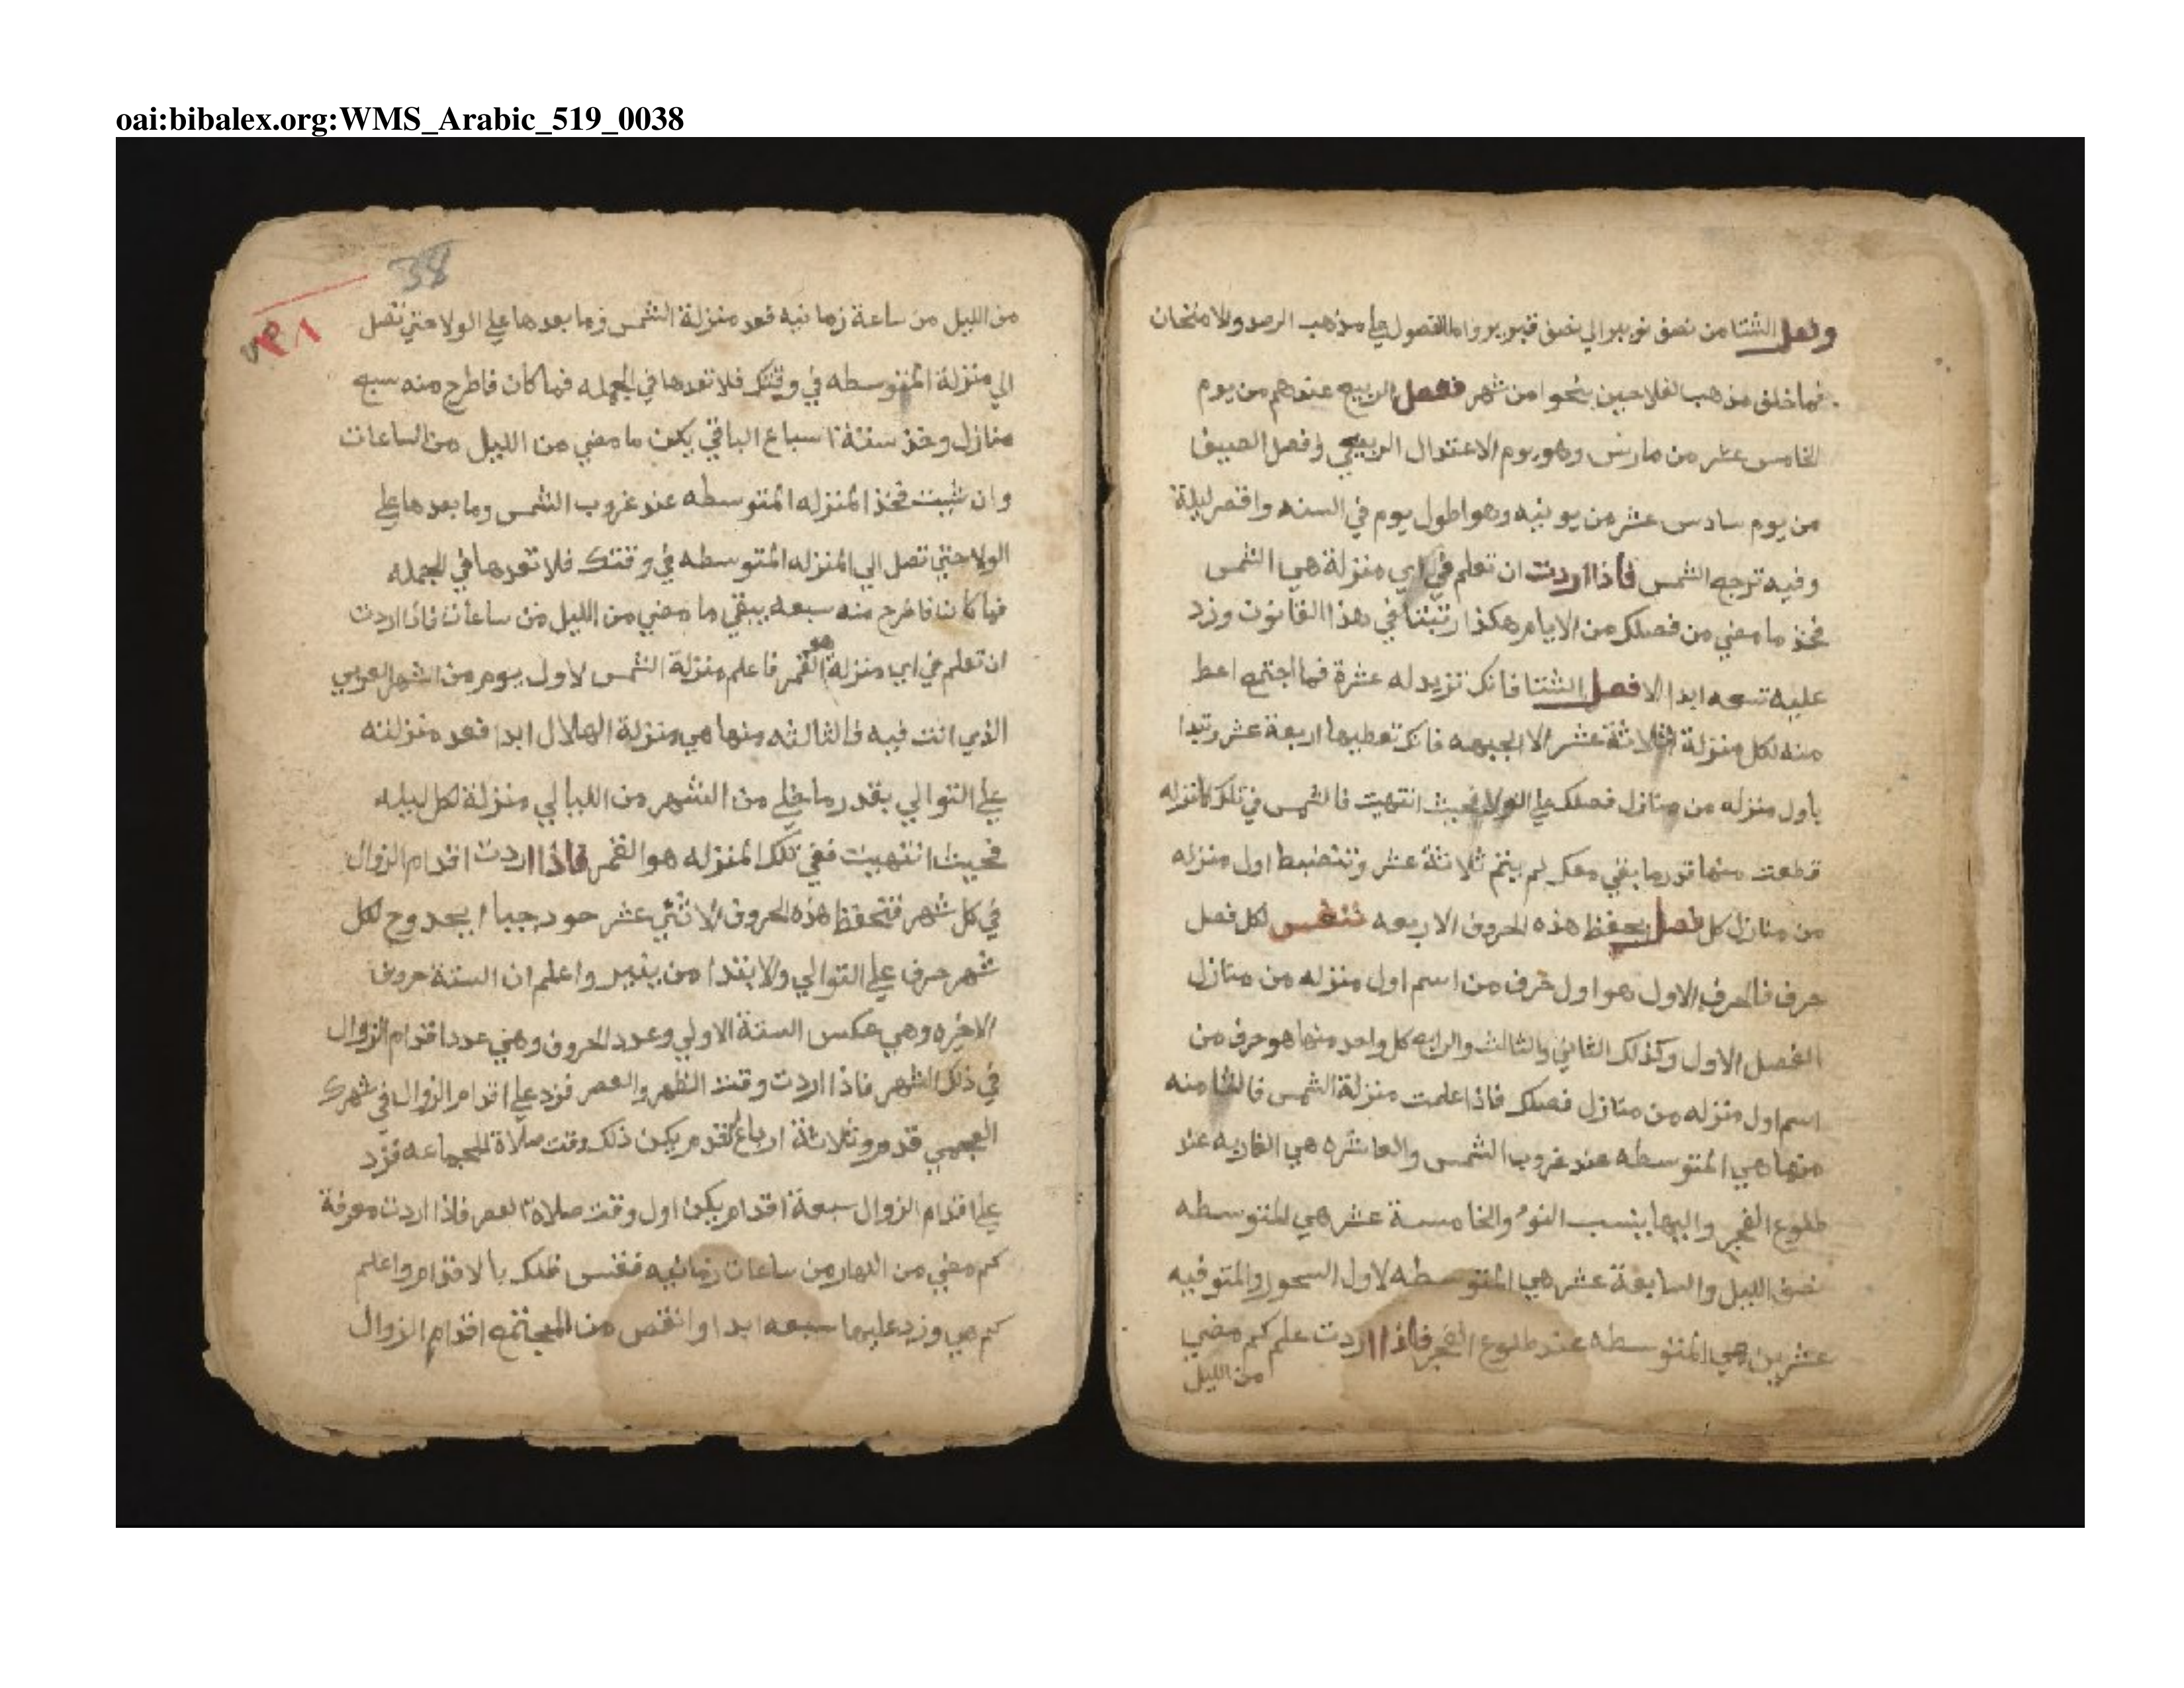 oai:bibalex.org:WMS_Arabic_519_0038
وفصل الشتا من نصف نوبير الي نصف فبرير واما الفصول علي مذهب الرصد والامتحان
فما خلف مذهب الفلاحين بنحوا من شهر ففصل الربيع عندهم من يوم
الخامس عشر من مارس وهو يوم الاعتدال الربيعي وفصل الصيف
من يوم سادس عشر من يونيه وهو اطول يوم في السنه واقصر ليلة
وفيه ترجع الشمس فاذا اردت ان تعلم في اي منزلة هي الشمس
فخذ ما مضي من فصلك من الايام هكذا رتبتنا في هذا القانون وزد
عليه تسعه ابدا الا فصل الشتا فانك تزيد له عشرة فما اجتمع اعط
منه لكل منزلة ثلاثة عشر الا الجبهه فانك تعطيها اربعة عشر وتبدا
باول منزله من منازل فصلك علي الولا فحيث انتهيت فالشمس في تلك المنزله
قطعت منها قدر ما بقي معك لم يتم ثلاثة عشر وتنضبط اول منزله
من منازل كل فصل بحفظ هذه الحروف الاربعه لكل فصل
حرف فالحرف الاول هو اول حرف من اسم اول منزله من منازل
الفصل الاول وكذلك الثاني والثالث والرابع كل واحد منها هو حرف من
اسم اول منزله من منازل فصلك فاذا علمت منزلة الشمس فالثامنه
منها هي المتوسطه عند غروب الشمس والعاشره هي الغاربه عند
طلوع الفجر واليها ينسب النوء والخامسة عشر هي المتوسطه
نصف الليل والسابعة عشر هي المتوسطه لاول السحور والمتوفيه
عشرين هي المتوسطه عند طلوع الفجر فاذا اردت علم كم مضي
من الليل
38
٣٨
من الليل من ساعة زمانيه فعد منزلة الشمس وما بعدها علي الولا حتي تصل
الي منزلة المتوسطه في وقتك فلا تعدها في الجمله فما كان فاطرح منه سبع
منازل وخذ ستة اسباع الباقي يكن ما مضي من الليل من الساعات
وان شيت فخذ المنزله المتوسطه عند غروب الشمس وما بعدها علي
الولا حتي تصل الي المنزله المتوسطه في وقتك فلا تعدها في الجمله
فما كان فاطرح منه سبعه يبقي ما مضي من الليل من ساعات فاذا اردت
ان تعلم في اي منزلة هو القمر فاعلم منزلة الشمس لاول يوم من الشهر العربي
الذي انت فيه فالثالثه منها هي منزلة الهلال ابدا فعد منزلته
علي التوالي بقدر ما خلي من الشهر من الليالي منزلة لكل ليله
فحيث انتهيت ففي تلك المنزله هو القمر فاذا اردت اقدام الزوال
في كل شهر فتحفظ هذه الحروف الاثني عشر حو دجبا ابجدوح لكل
شهر حرف علي التوالي والابتدا من ينير واعلم ان الستة حروف
الاخيره وهي عكس الستة الاولي وعدد الحروف وهي عدد اقدام الزوال
في ذلك الشهر فاذا اردت وقت الظهر والعصر فزد علي اقدام الزوال في شهرك
العجمي قدم وثلاثة ارباع القدم يكن ذلك وقت صلاة الجماعه فزد
علي اقدام الزوال سبعة اقدام يكن اول وقت صلاة العصر فاذا اردت معرفة
كم مضي من النهار من ساعات زمانيه فقس ظلك بالاقدام واعلم
كم هي وزد عليها سبعه ابدا وانقص من المجتمع اقدام الزوال